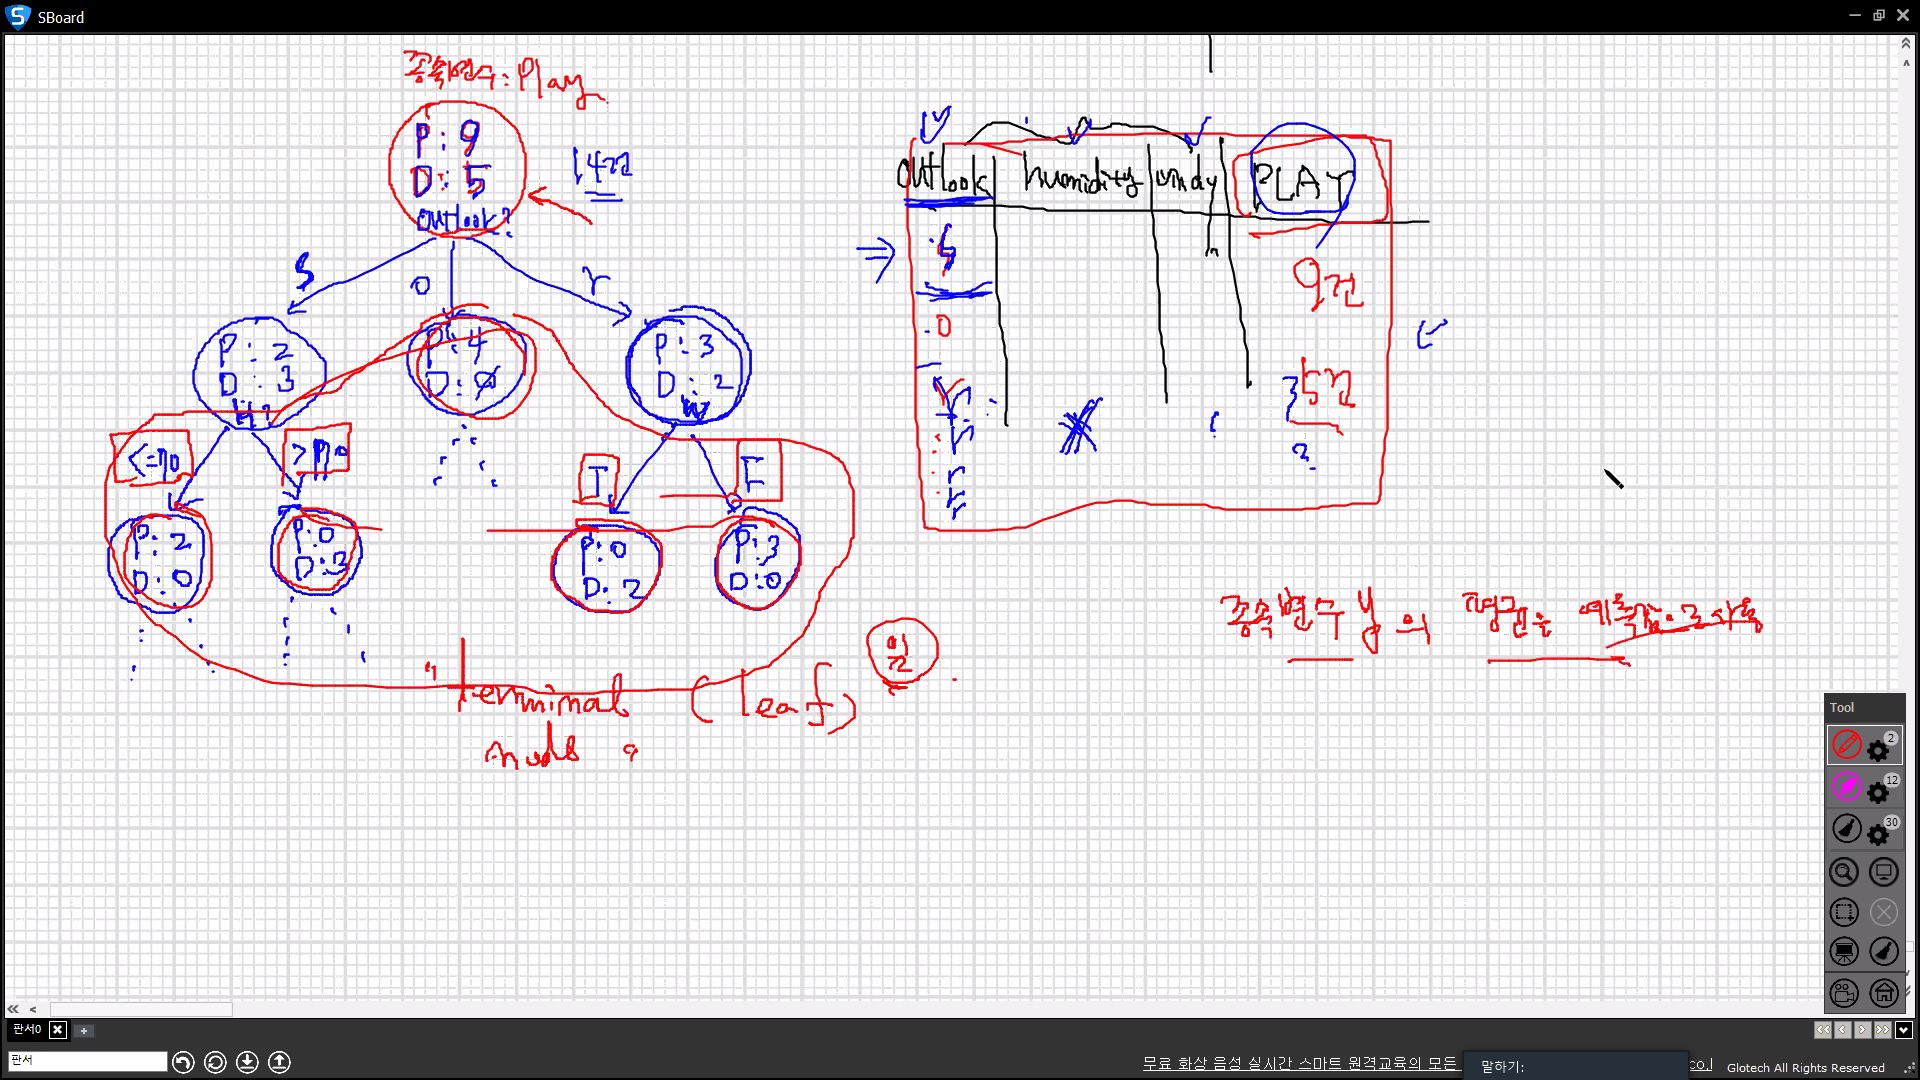 SBoard
종속변수 : Play
P : 9
D : 5
outlook?
14건
S
O
r
P : 2
D : 3
H?
P : 4
D : 0
P : 3
D : 2
W
<=70
>70
T
F
P : 2
D : 0
P : 0
D : 3
P : 0
D : 2
P : 3
D : 0
terminal (leaf)
node
잎
outlook humidity windy PLAY
S
9건
O
5건
r
r
r
종속변수 y의 평균을 예측값으로 사용
Tool
2
12
30
판서0
판서
무료 화상 음성 실시간 스마트 원격교육의 모든
말하기:
co.l
Glotech All Rights Reserved